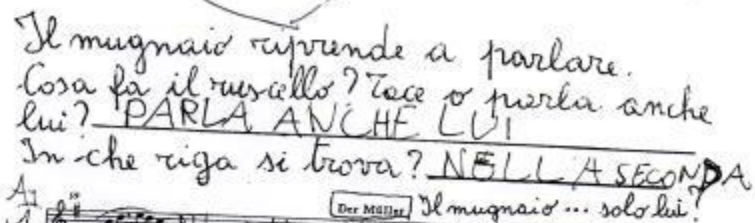 Il mugnaio riprende a parlare.
Cosa fa il ruscello? Tace o parla anche
lui? PARLA ANCHE LUI
In che riga si trova? NELLA SECONDA
A1 Der Müller Il mugnaio... solo lui?